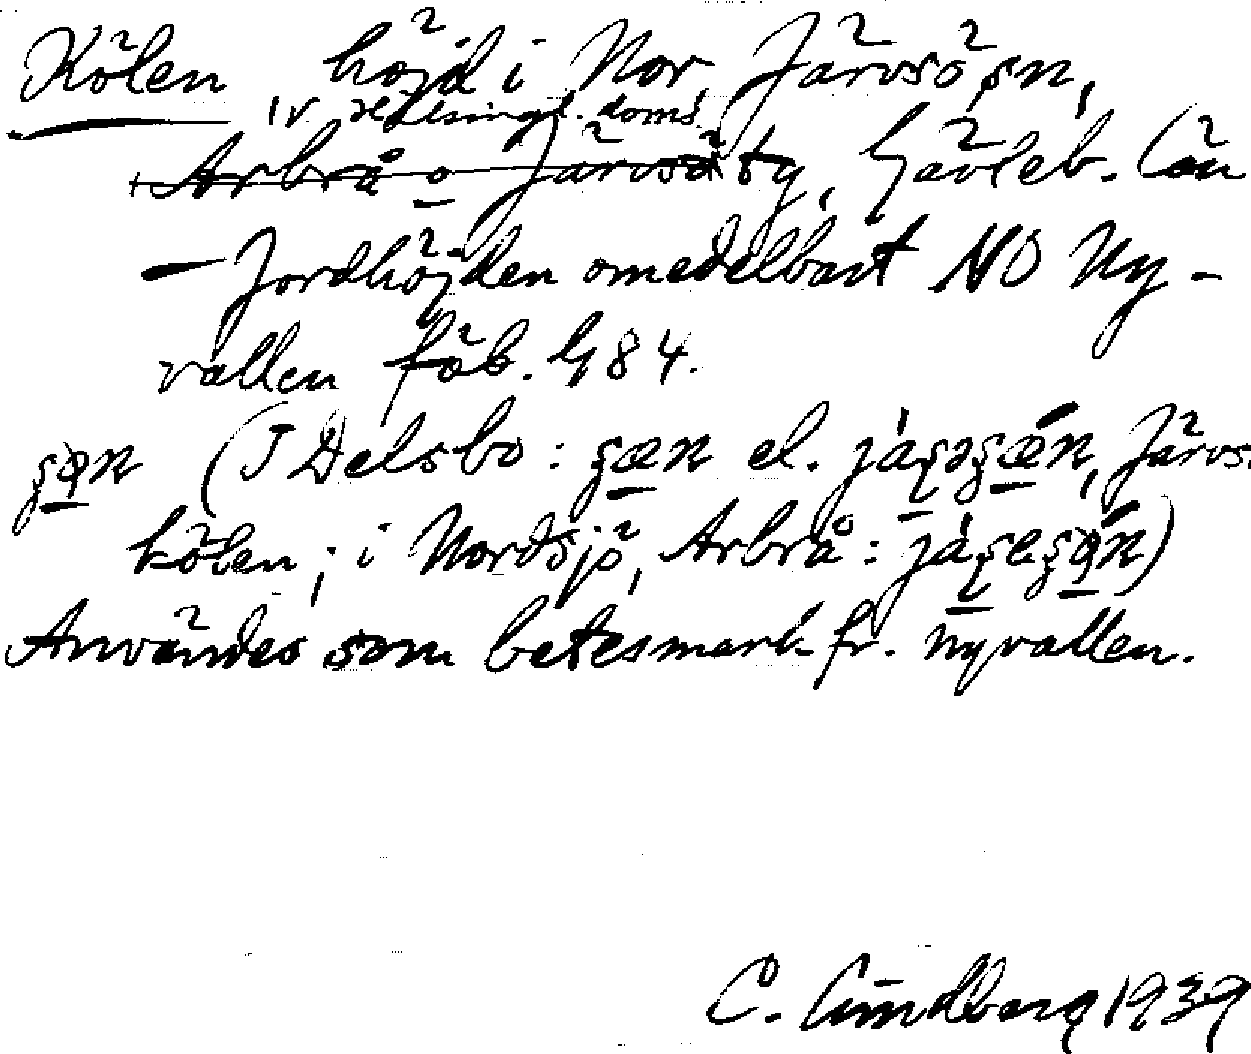 Kölen, höjd i Nor, Järvsö sn,
v. Hälsingl. doms.
Arbrå o Järvsö tg, Gävleb. län
— Jordhöjden omedelbart NO Ny-
vallen fäb. G 84.
(I Delsbo: el. Järvs.
kölen; i Nordsjö, Arbrå:
Användes som betesmark fr. Nyvallen.
C. Lindberg 1939